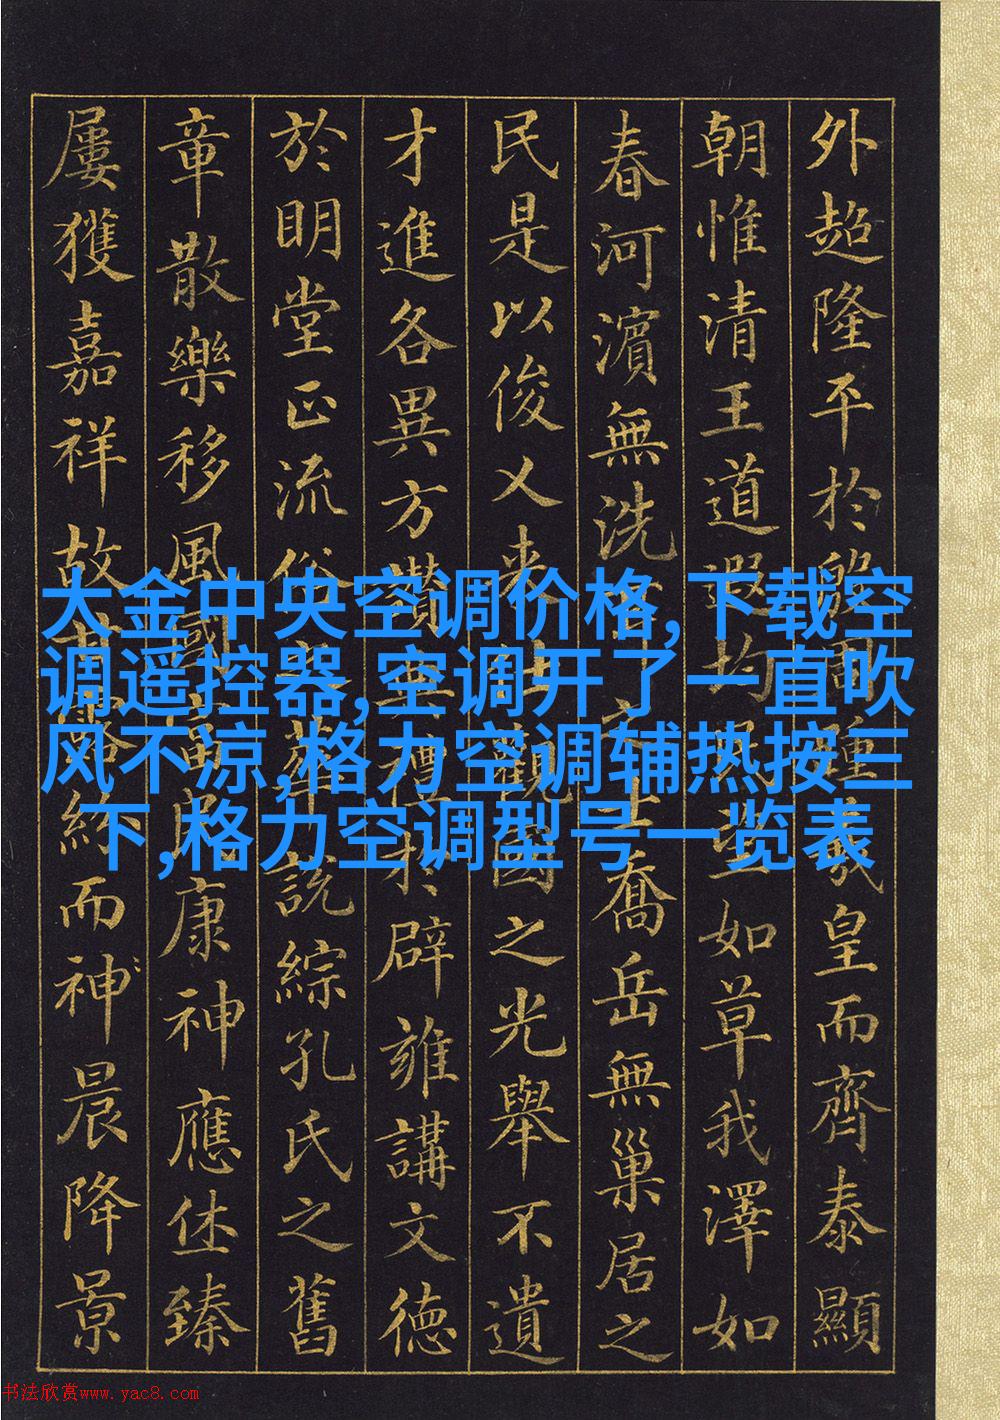 外超隆平於 皇而齊泰顯
朝惟清王道遐均 如草我澤如
春河濵無洗 喬岳無巢居之
民是以俊乂来 觀國之光舉不遺
才進各異方 於辟雍講文德
於明堂正流俗 說綜孔氏之舊
章散樂移風國富 康神應休臻
屢獲嘉祥故 紛而神晨降景
大金中央空调价格,下载空
调遥控器,空调开了一直吹
风不凉,格力空调辅热按三
下,格力空调型号一览表
书法欣赏www.yac8.com